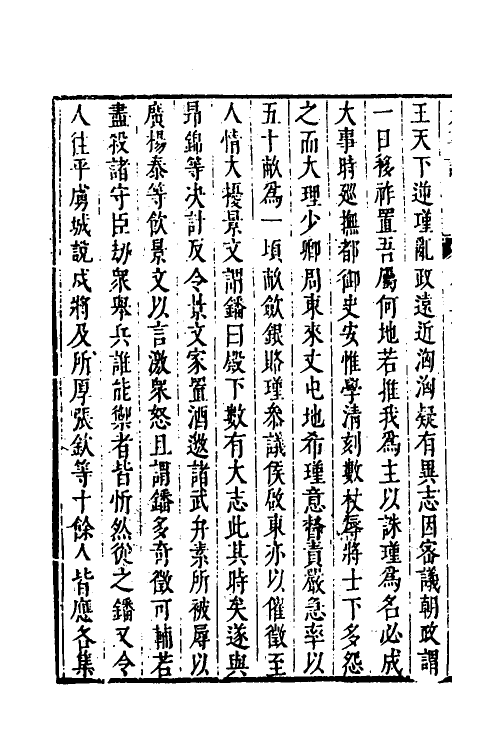 王天下逆瑾亂政遠近洶洶疑有異志因密議朝政謂
一日移祚置吾屬何地若推我為主以誅瑾為名必成
大事時廵撫都御史安惟學清刻數杖辱將士下多怨
之而大理少卿周東來丈屯地希瑾意督責嚴急率以
五十畝為一頃畝斂銀賂瑾叅議侯啟東亦以催徵至
人情大擾景文謂鐇曰殿下數有大志此其時矣遂與
昂錦等决計反令景文家置酒邀諸武弁素所被辱以
廣楊泰等飲景文以言激衆怒且謂鐇多竒徵可輔若
盡殺諸守臣劫衆舉兵誰能禦者皆忻然從之鐇又令
人往平虜城説戍將及所厚張欽等十餘人皆應各集